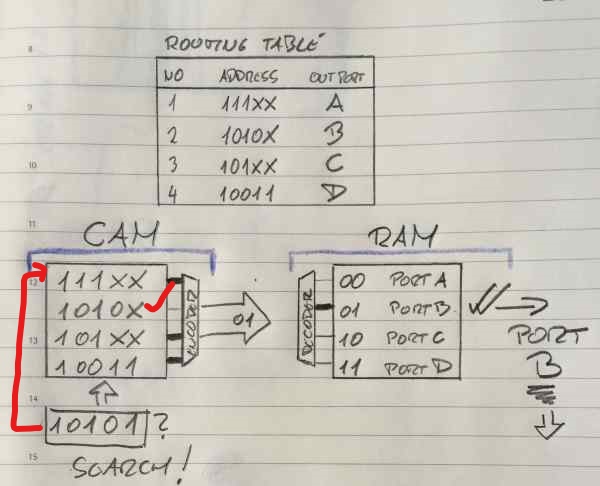 ROUTING TABLE
8
NO ADDRESS OUTPORT
9
1 111XX A
2 1010X B
10
3 101XX C
4 10011 D
11
CAM RAM
12
111XX
1010X
13
101XX
10011
ENCODER
01
DECODER
00 PORT A
01 PORT B
10 PORT C
11 PORT D
PORT
B
14
10101 ?
15
SEARCH!